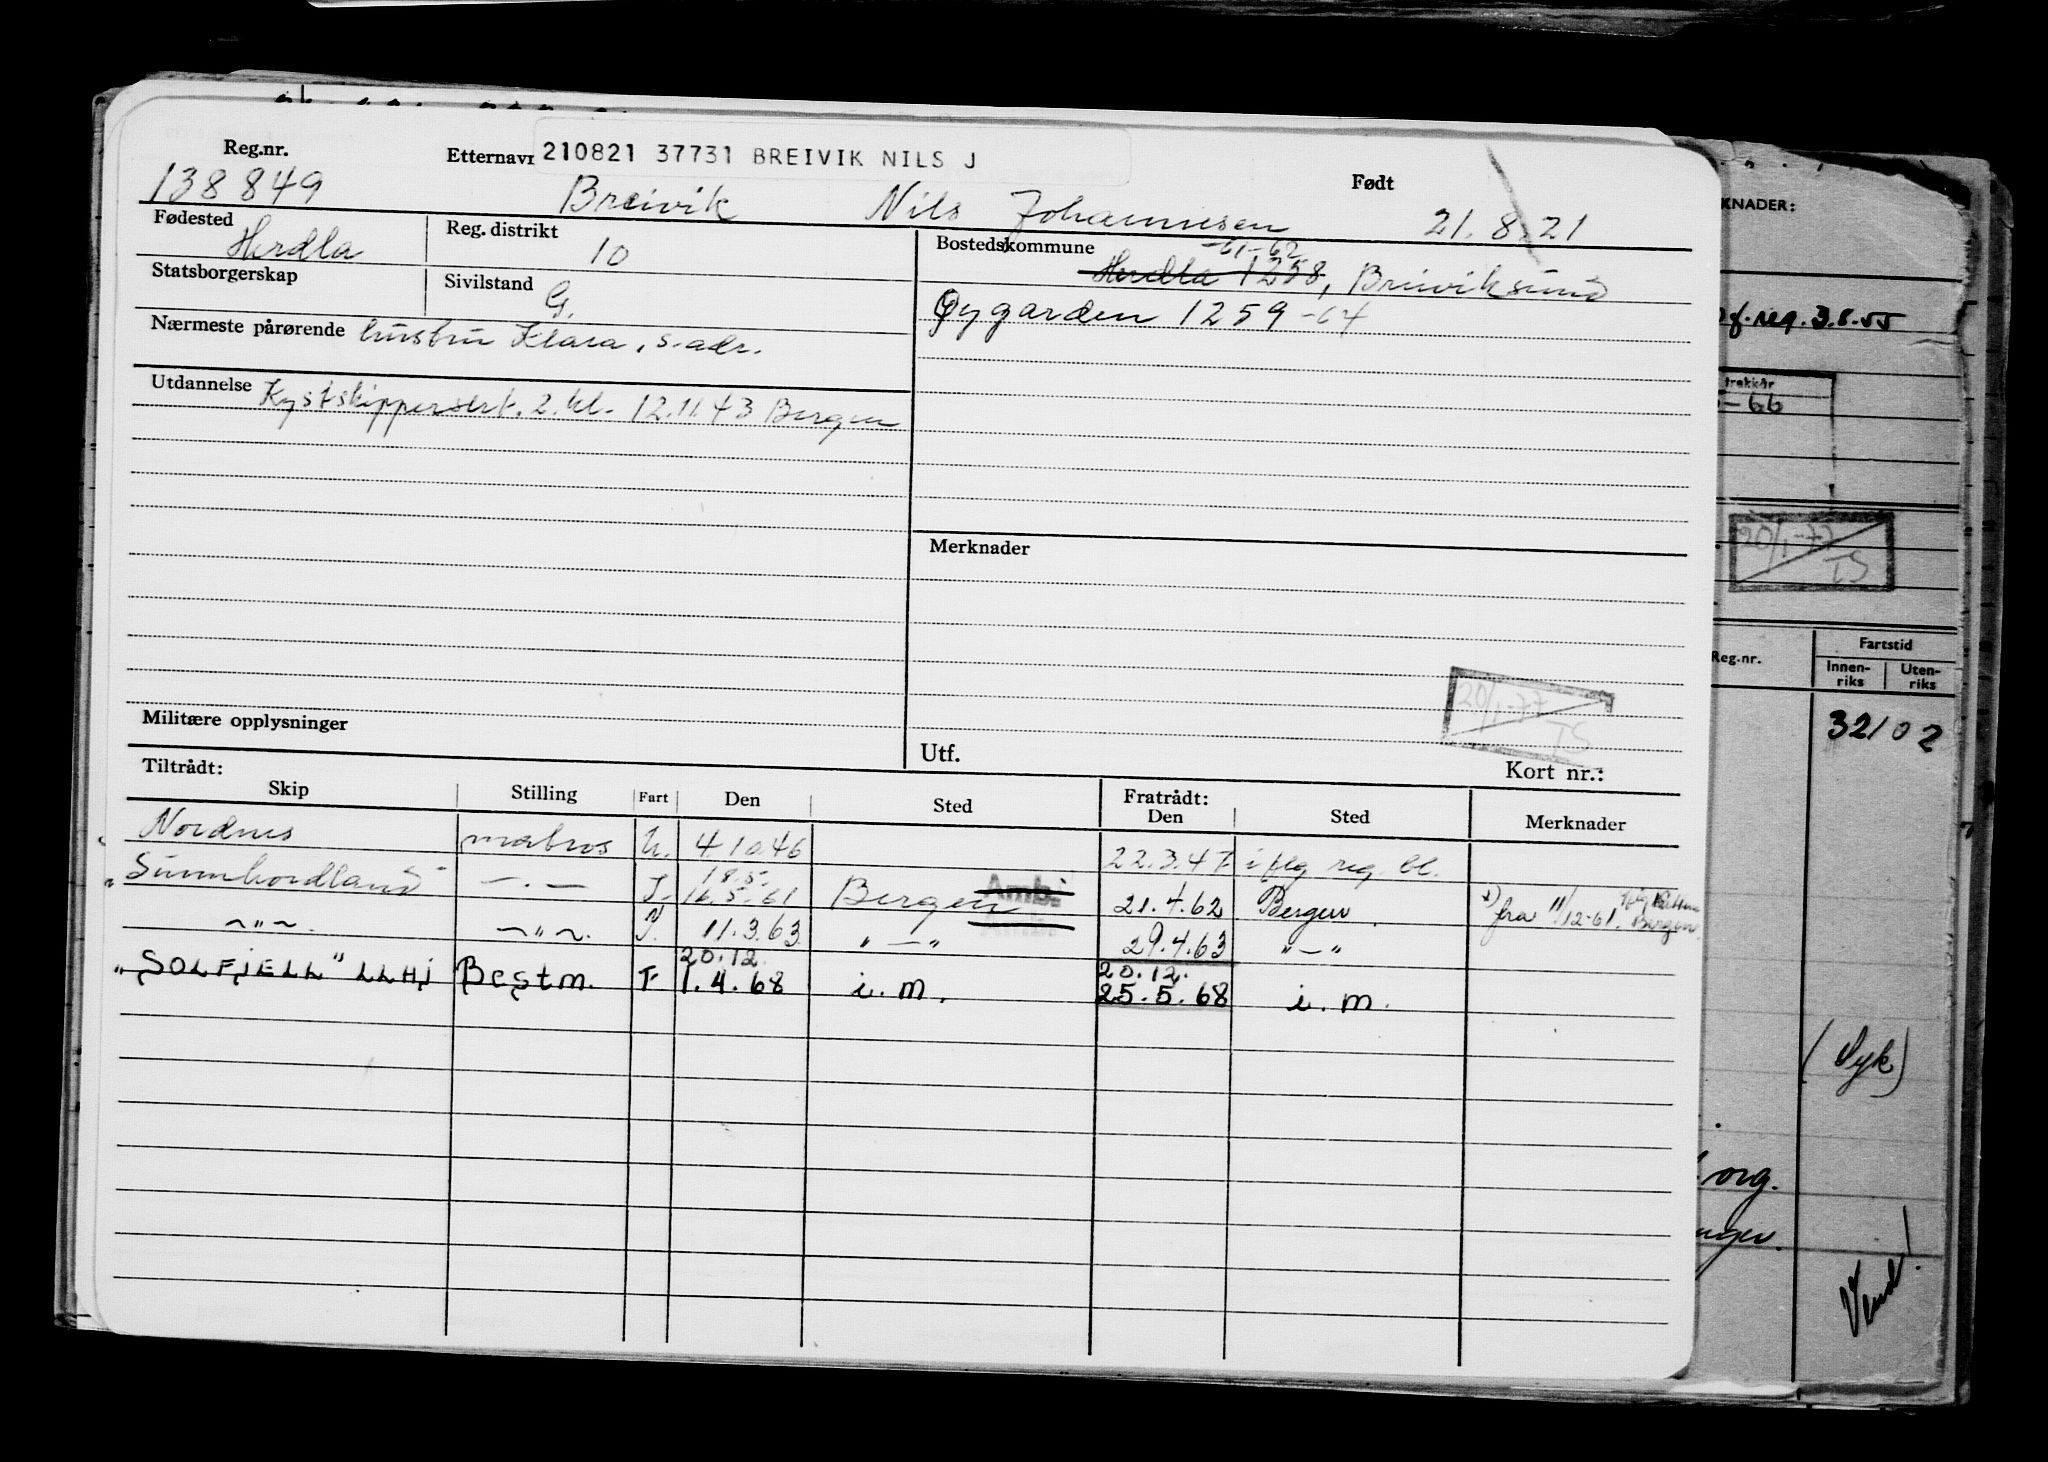 Reg.nr. Etternavn 210821 37731 BREIVIK NILS J Født
138849 Breivik Nils Johannesen 21.8.21
Fødested Herdla Reg. distrikt 10 Bostedskommune -61-62
Herdla 1258, Breiviksund
Statsborgerskap Sivilstand G. Øygarden 1259 -64
Nærmeste pårørende hustru Klara, s. adr.
Utdannelse Kystskippersert. 2. kl. 12.11.43 Bergen
Merknader
20/1-77 TS
Militære opplysninger Utf. Kort nr.:
Tiltrådt: Fratrådt:
Skip Stilling Fart Den Sted Den Sted Merknader
Nordnes matros U. 4.10.46 22.3.47 i flg reg. bl.
18.5.
"Sunnhordland" —.— I. 16.5.61 Bergen Amb. 21.4.62 Bergen x) fra 11/12-61. Bergen.
~"~. ~"~. I. 11.3.63 "—" 29.4.63 "—"
20.12. 20.12.
"SOLFJELL" LLHJ Bestm. F 1.4.68 i.m. 25.5.68 i.m.
KNADER:
reg. 3.8.55
trekkår
-66
20/1-77 TS
Reg.nr. Fartstid
Innen-riks Uten-riks
32102
(Syk)
org.
Vend!